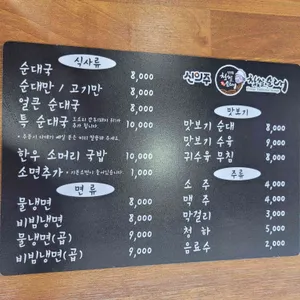 식사류
순대국 8,000
순대만 / 고기만 8,000
얼큰 순대국 8,000
특 순대국 10,000
한우 소머리 국밥 10,000
소면추가 1,000
면류
물냉면 8,000
비빔냉면 8,000
물냉면(곱) 9,000
비빔냉면(곱) 9,000
신의주
찹쌀순대
맛보기
맛보기 순대 8,000
맛보기 수육 9,000
귀수육 무침 8,000
주류
소주 4,000
맥주 4,000
막걸리 3,000
청하 5,000
음료수 2,000